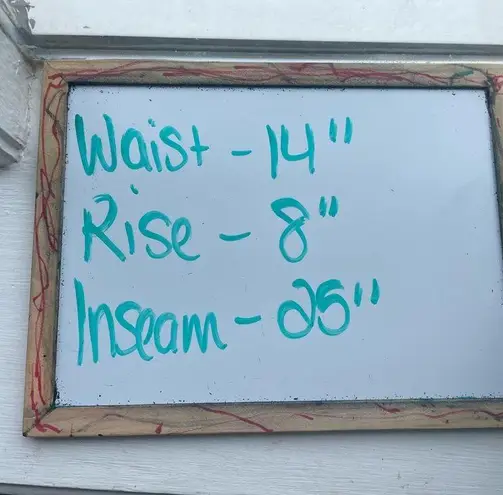 Waist - 14"
Rise - 8"
Inseam - 25"